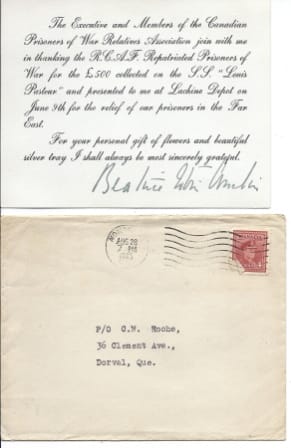 The Executive and Members of the Canadian
Prisoners of War Relatives Association join with me
in thanking the R.C.A.F. Repatriated Prisoners of
War for the £500 collected on the S.S. "Louis
Pasteur" and presented to me at Lachine Depot on
June 9th for the relief of our prisoners in the Far
East.
For your personal gift of flowers and beautiful
silver tray I shall always be most sincerely grateful.
Beatrice
AUG 28
P/O C.N. Roche,
36 Clement Ave.,
Dorval, Que.